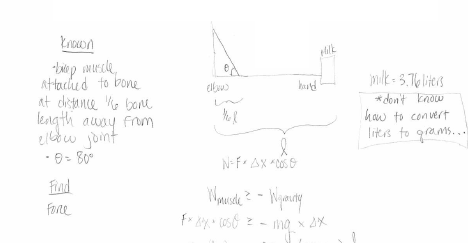 Known
• bicep muscle
attached to bone
at distance 1/6 bone
length away from
elbow joint
• θ = 80°
Find
Force
θ
milk
elbow
hand
1/6 l
l
W = F × Δx × cosθ
Wmuscle ≥ - Wgravity
F × Δx × cosθ ≥ - mg × Δx
milk = 3.76 liters
*don't know
how to convert
liters to grams...